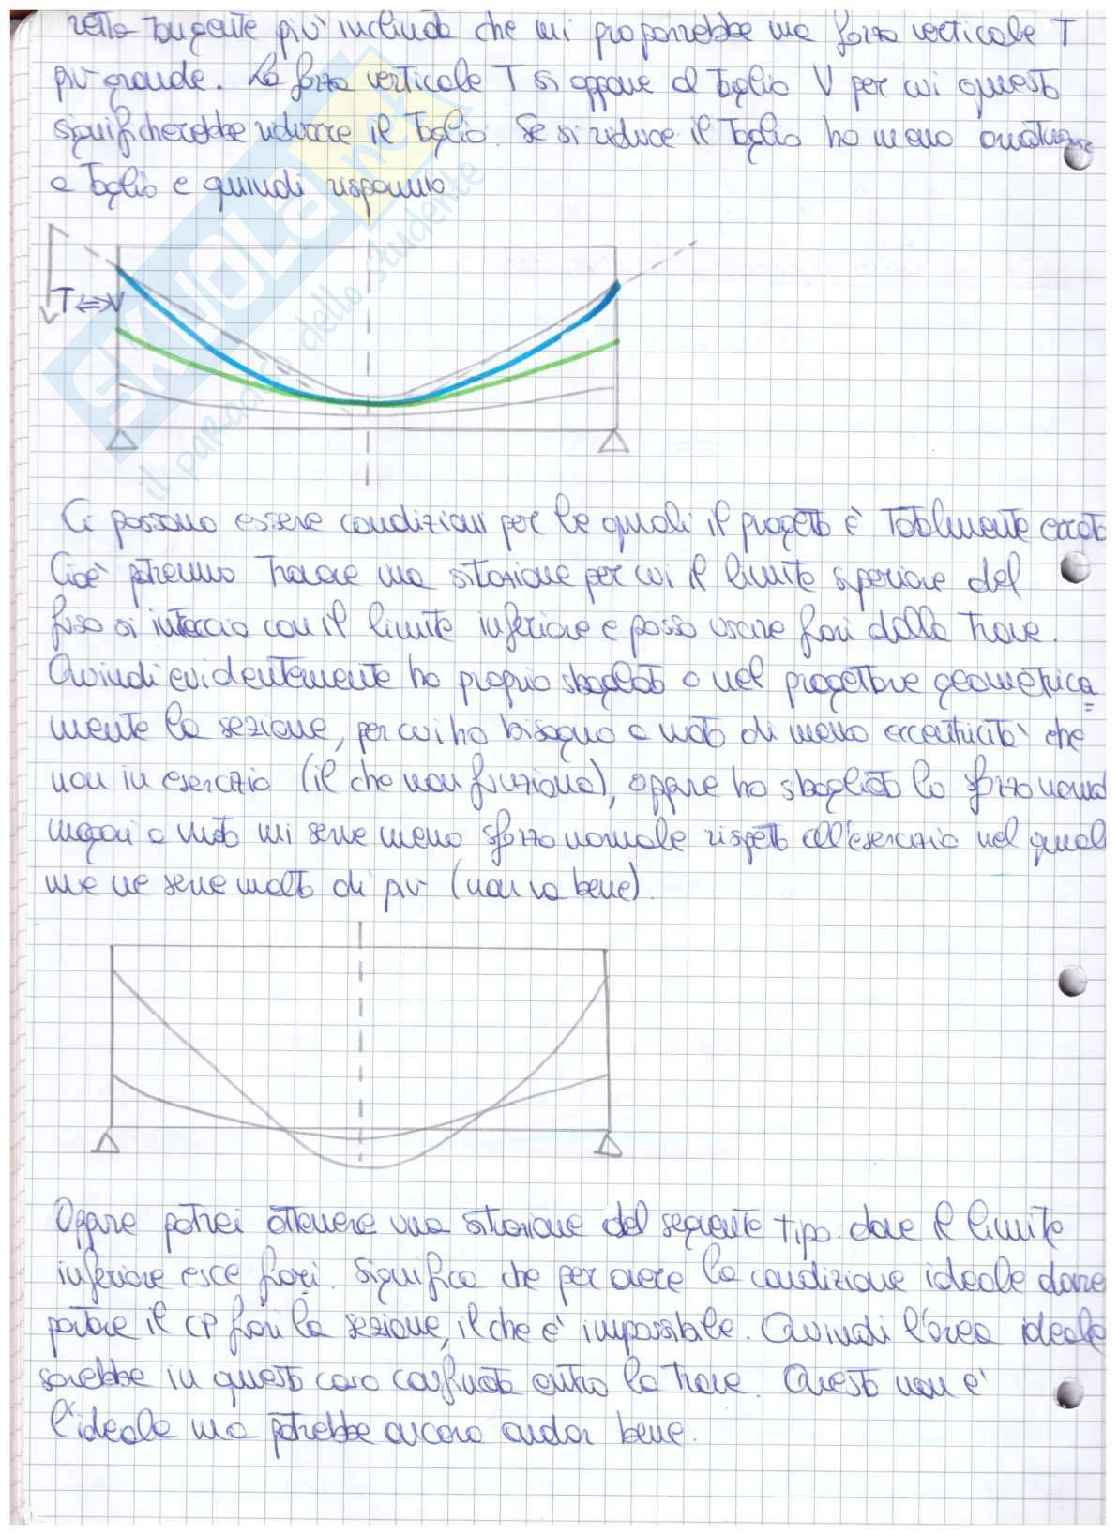 retta tangente più inclinata che mi proporrebbe una forza verticale T
più grande. La forza verticale T si oppone al taglio V per cui questo
significherebbe ridurre il taglio. Se si riduce il taglio ho meno armatura
a taglio e quindi risparmio
T⇔V
Ci possono essere condizioni per le quali il progetto è totalmente errato
Cioè potremmo trovare una situazione per cui il limite superiore del
fuso si intreccia con il limite inferiore e posso uscire fuori dalla trave.
Quindi evidentemente ho proprio sbagliato o nel progettare geometrica
mente la sezione, per cui ho bisogno a vuoto di meno eccentricità che
non in esercizio (il che non funziona), oppure ho sbagliato lo sforzo normal
magari a vuoto mi serve meno sforzo normale rispetto all'esercizio nel qual
me ne serve molto di più (non va bene).
Oppure potrei ottenere una situazione del seguente tipo dove il limite
inferiore esce fuori. Significa che per avere la condizione ideale dovrei
portare il CP fuori la sezione, il che è impossibile. Quindi l'area ideale
sarebbe in questo caso confinata entro la trave. Questo non è
l'ideale ma potrebbe ancora andar bene.
SKUOLA.net
il paradiso dello studente